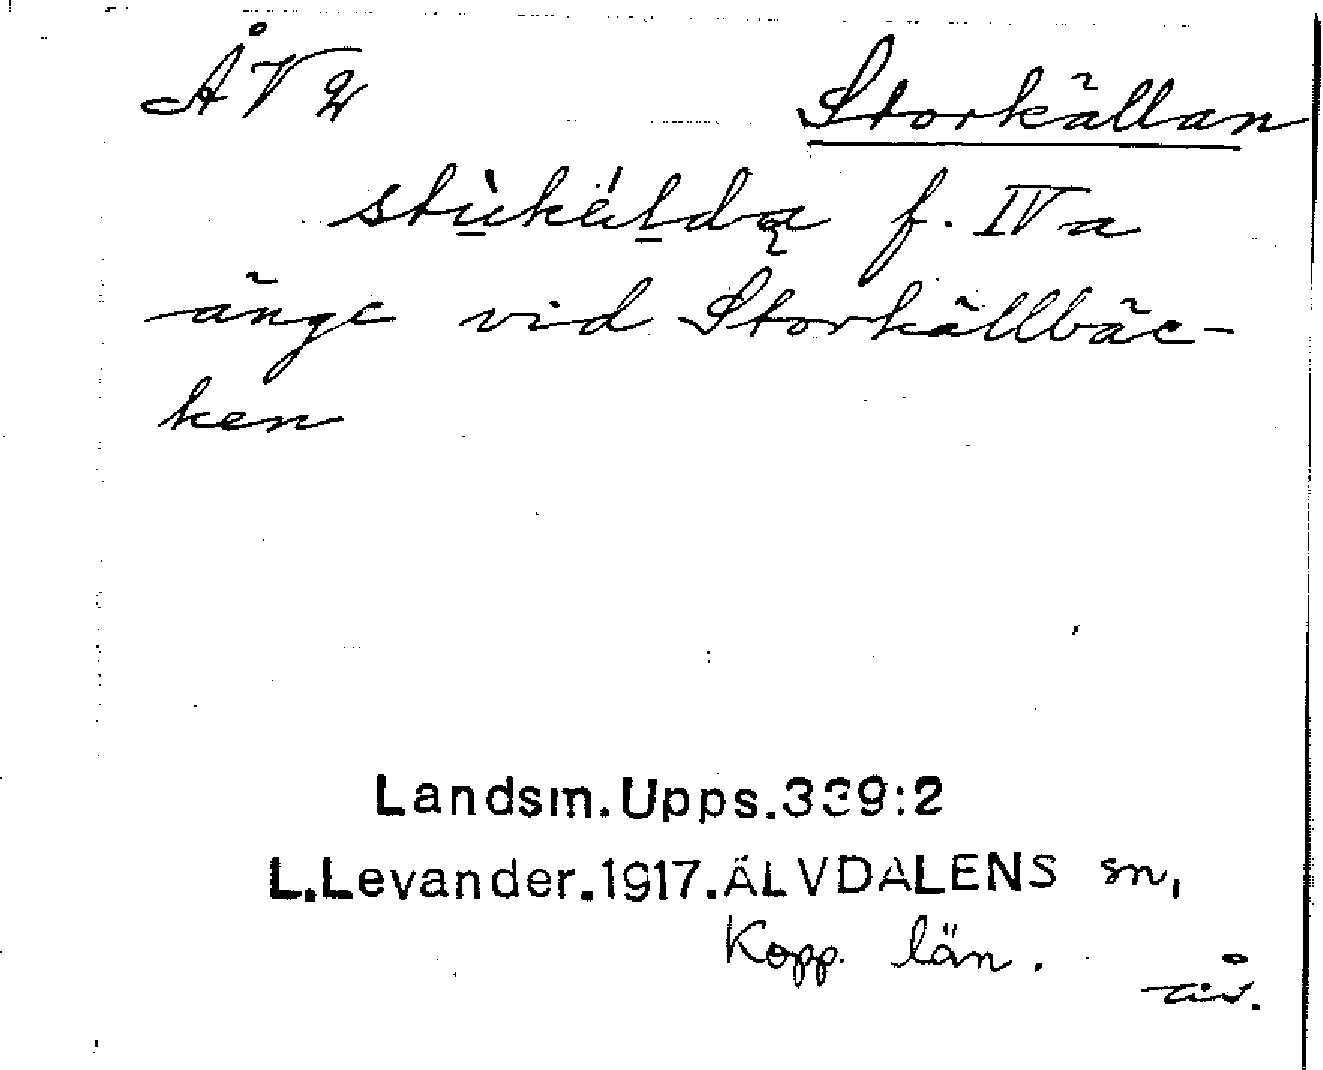 ÅV2 Storkällan
stùkä́ldą f. IVa
änge vid Storkällbäc-
ken
Landsm.Upps.339:2
L.Levander.1917.ÄLVDALENS sn,
Kopp. län.